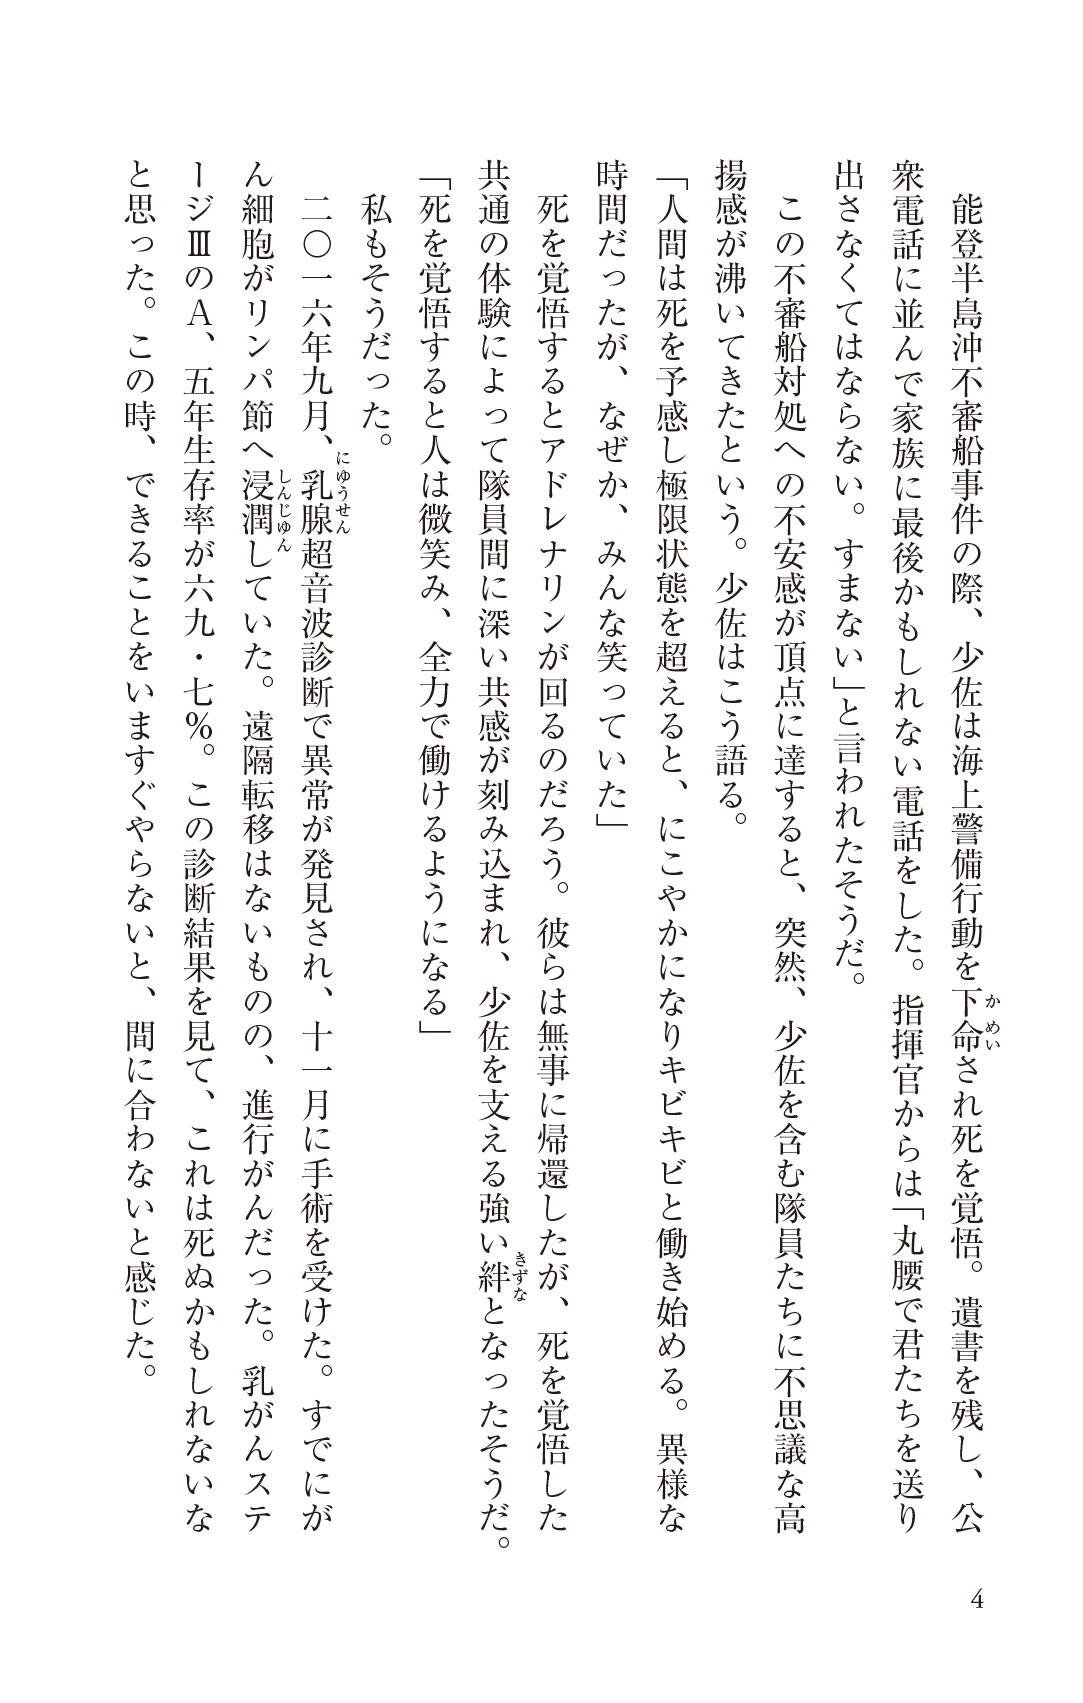 能登半島沖不審船事件の際、少佐は海上警備行動を下命され死を覚悟。遺書を残し、公
衆電話に並んで家族に最後かもしれない電話をした。指揮官からは「丸腰で君たちを送り
出さなくてはならない。すまない」と言われたそうだ。
この不審船対処への不安感が頂点に達すると、突然、少佐を含む隊員たちに不思議な高
揚感が沸いてきたという。少佐はこう語る。
「人間は死を予感し極限状態を超えると、にこやかになりキビキビと働き始める。異様な
時間だったが、なぜか、みんな笑っていた」
死を覚悟するとアドレナリンが回るのだろう。彼らは無事に帰還したが、死を覚悟した
共通の体験によって隊員間に深い共感が刻み込まれ、少佐を支える強い絆となったそうだ。
「死を覚悟すると人は微笑み、全力で働けるようになる」
私もそうだった。
二〇一六年九月、乳腺超音波診断で異常が発見され、十一月に手術を受けた。すでにが
ん細胞がリンパ節へ浸潤していた。遠隔転移はないものの、進行がんだった。乳がんステ
ージⅢのA、五年生存率が六九・七%。この診断結果を見て、これは死ぬかもしれないな
と思った。この時、できることをいますぐやらないと、間に合わないと感じた。
かめい
きずな
にゆうせん
しんじゆん
4